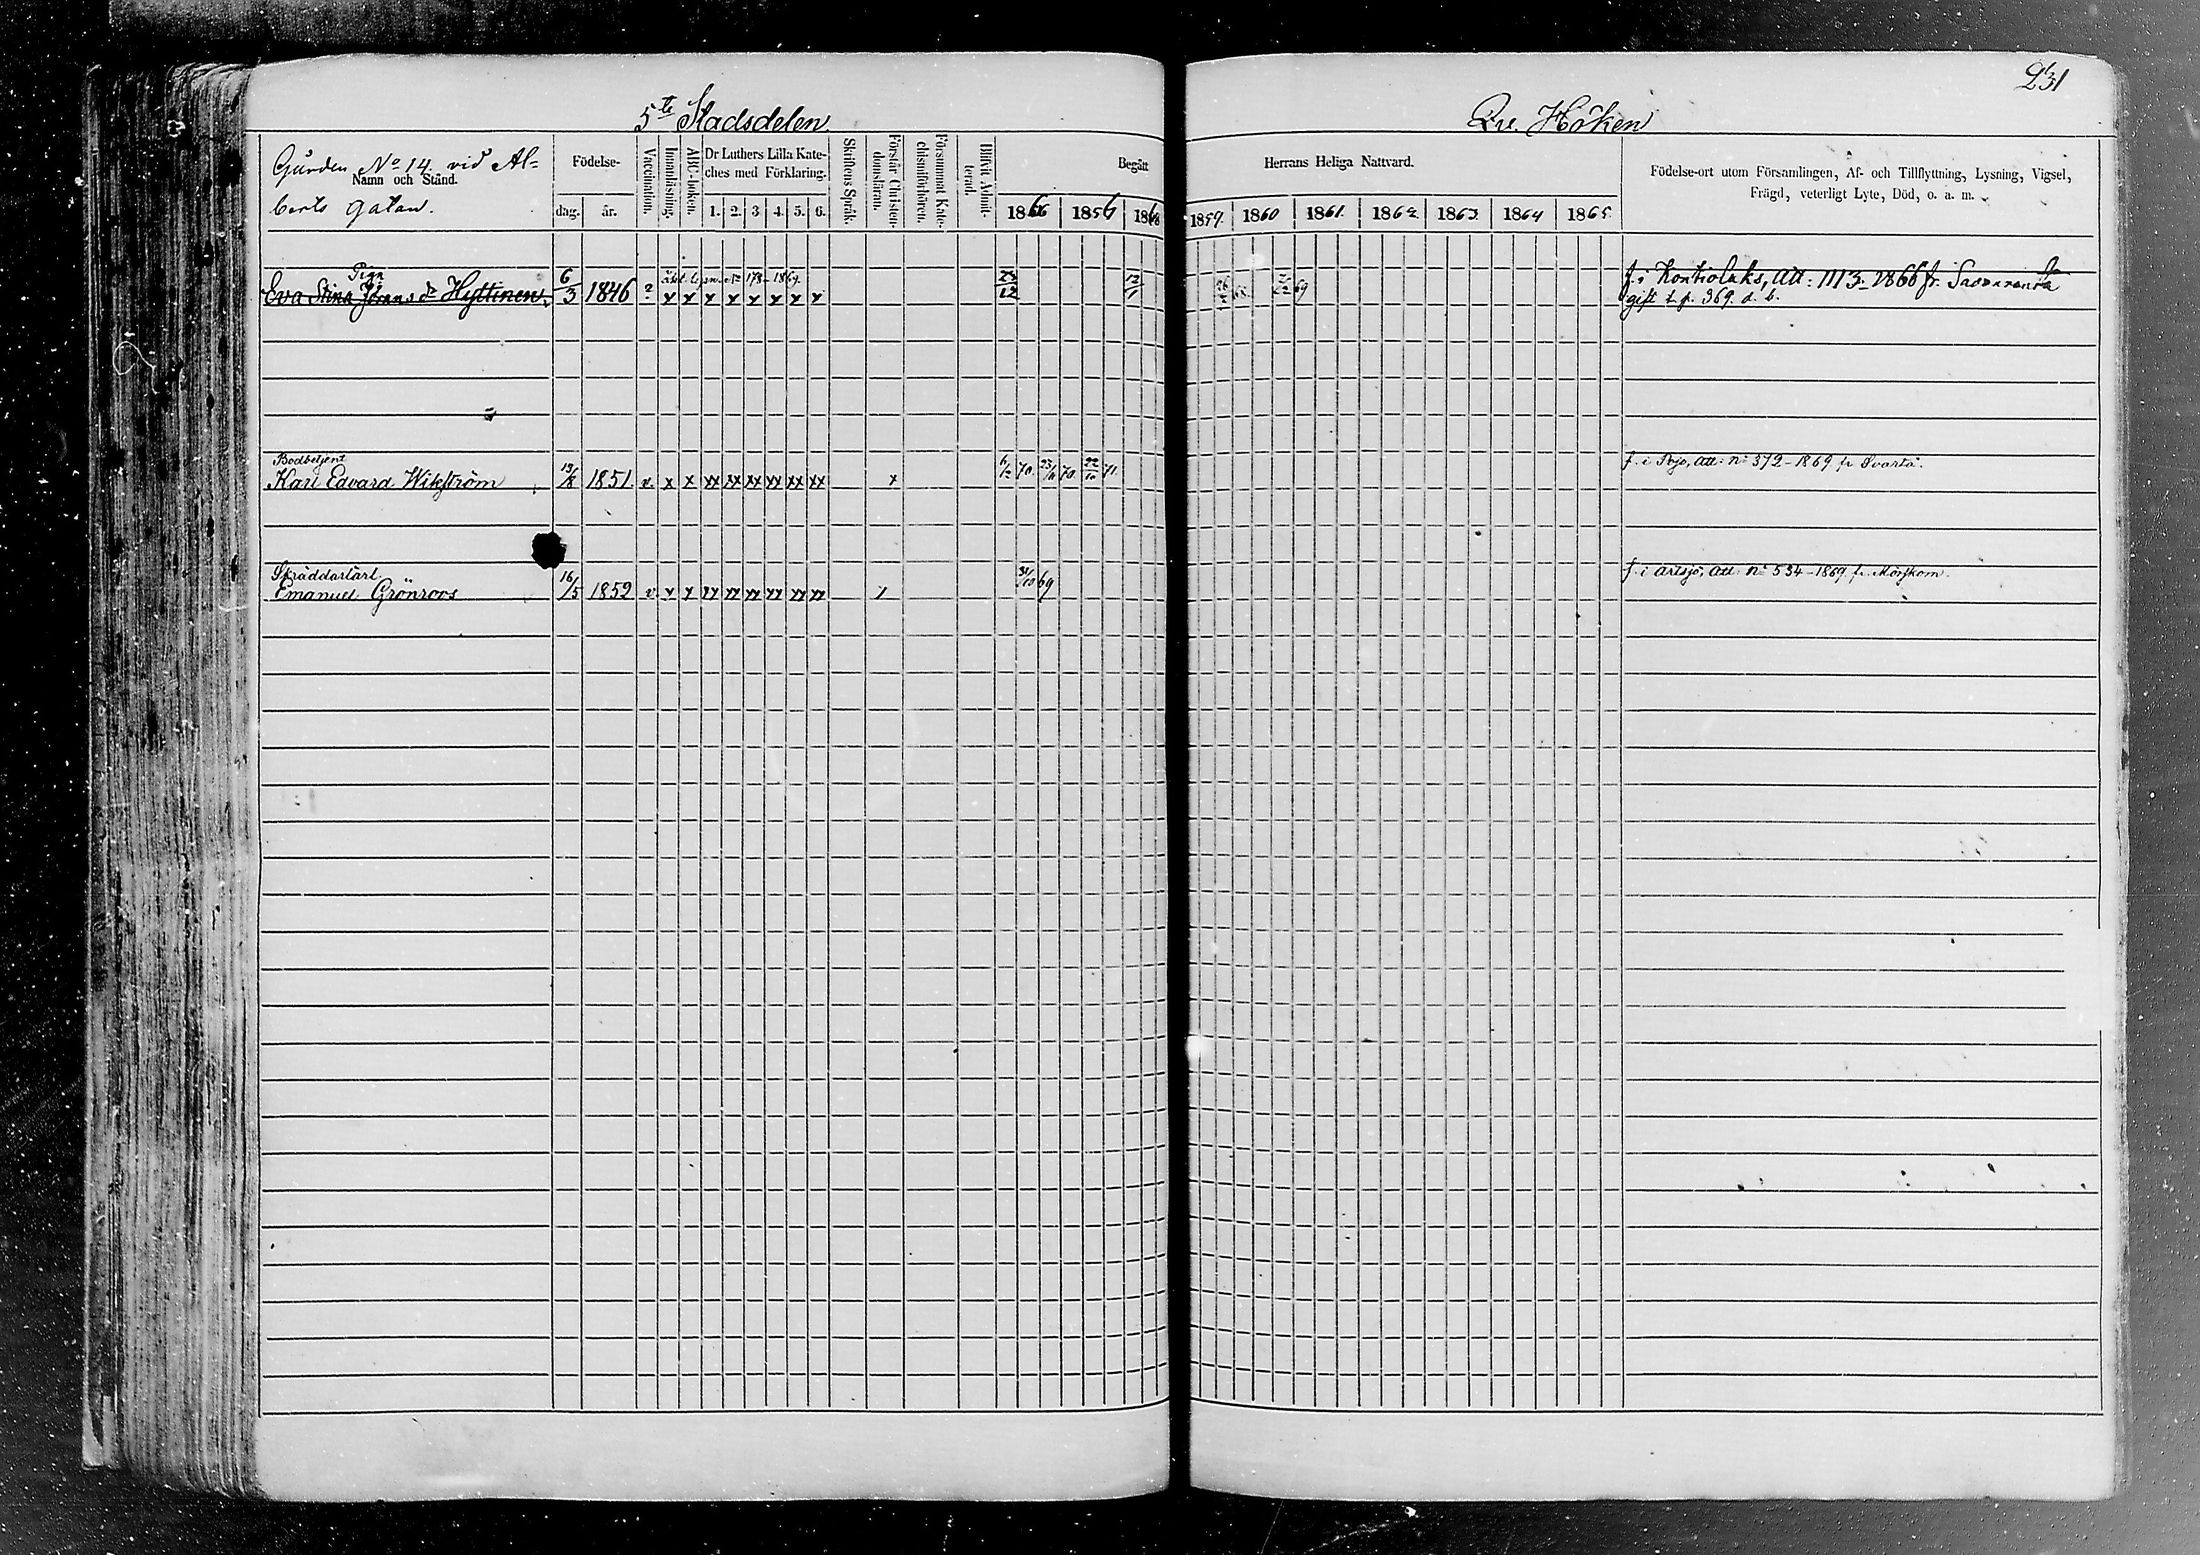 231
5te Stadsdelen.
Qv. Höken
Gården No 14. vid Al-
berts gatan.
Namn och Stånd.
Födelse-
dag. år.
Vaccination.
Innanläsning.
ABC-boken.
Dr Luthers Lilla Kate-
ches med Förklaring.
1. 2. 3 4. 5. 6.
Skriftens Språk.
Förstår Christen-
domsläran.
Försummat Kate-
chismiförhören.
Blifvit Admit-
terad.
Begått
Herrans Heliga Nattvard.
1866 1856 186
1857. 1860 1861. 1862. 1863. 1864 1865.
Födelse-ort utom Församlingen, Af- och Tillflyttning, Lysning, Vigsel,
Frägd, veterligt Lyte, Död, o. a. m.
Pigan
Eva Stina Jöransdr Hyttinen. 6/3 1846 ? y y y y y y y y 12/1 69
178-1869.
f. i Kontiolaks, att: 1113-1866 fr.
gift t. p. 369. d. b.
Bodbetjent
Karl Edvard Wikström 13/8 1851. v. x x xx xx xx xx xx xx x 6/12 70. 23/11 70. 22/10 71.
f. i Pojo, att: No 372-1869 fr Svartå.
Skräddarlärl
Emanuel Grönroos 16/5 1852 v y y yy yy yy yy yy yy y 31/10 69
f. i Artsjö, att: No 534-1869 fr. Mörskom.